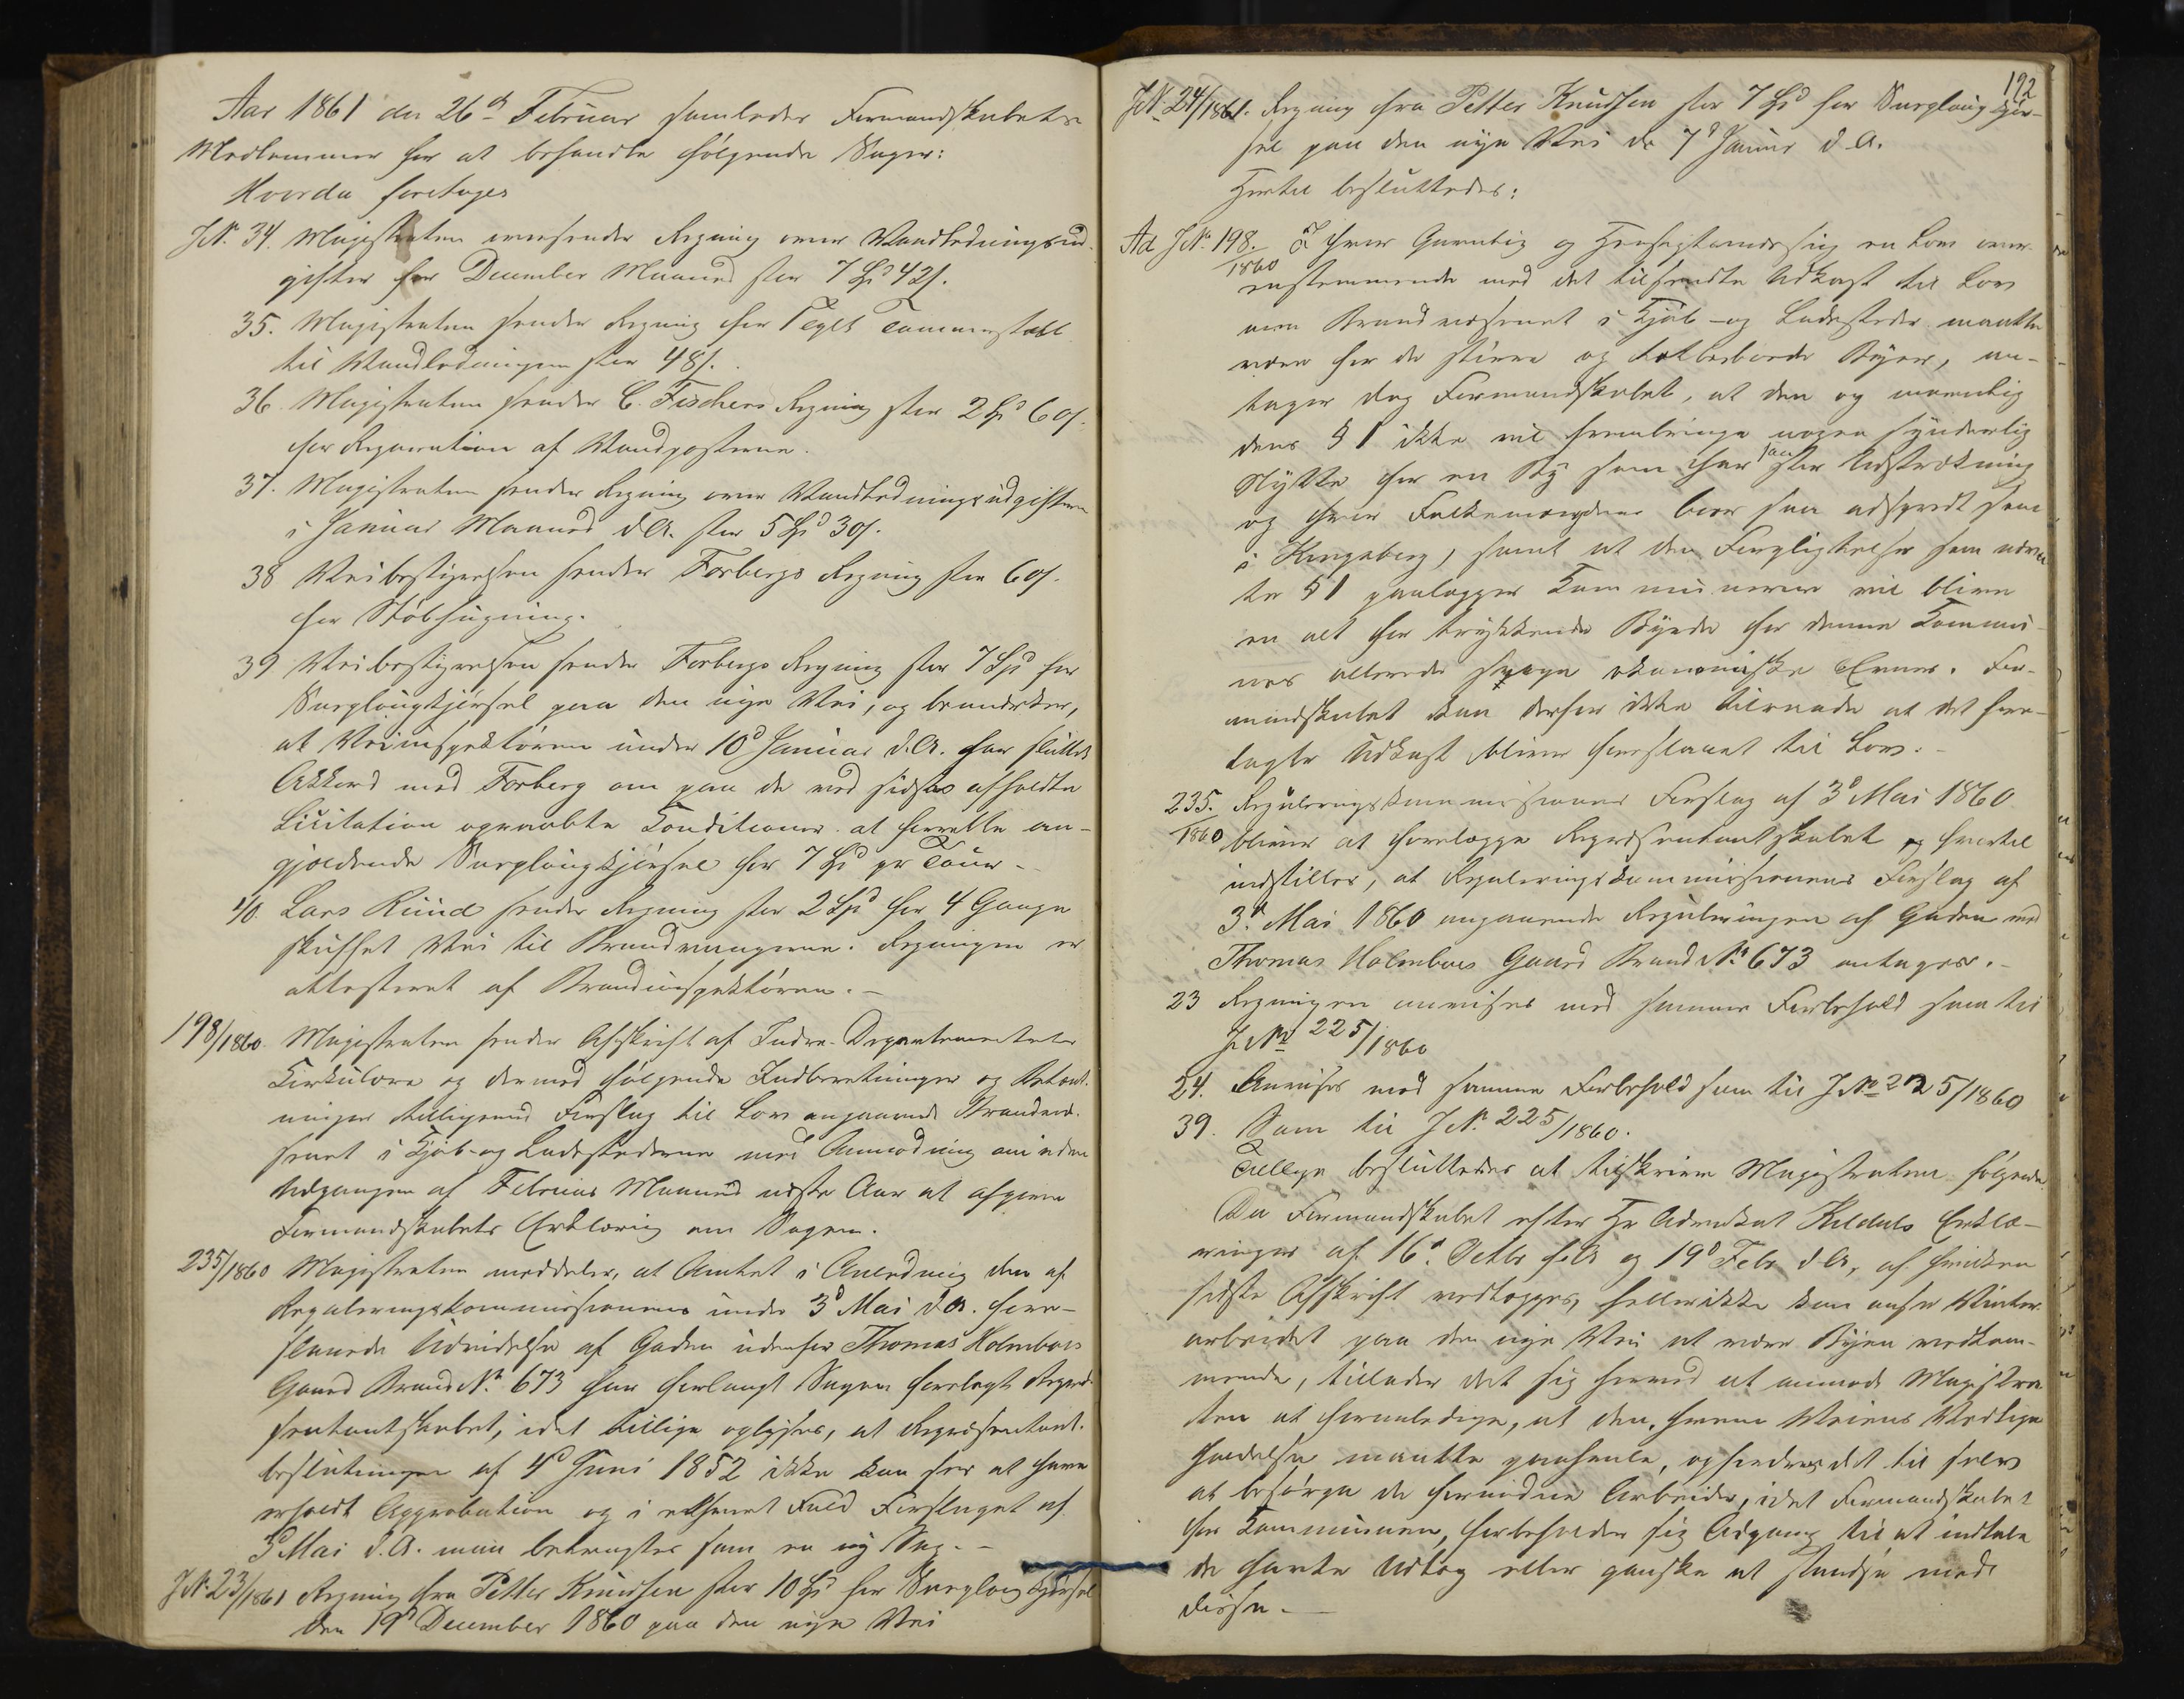 Aar 1861 den 26de Februar samledes Formandskabets
Medlemmer for at behandle følgende Sager:
Hvorda foretoges
J.N. 34. Magistraten oversender Regning over Vandledningsud-
gifter for December Maaned stor 7 Spd 42 s.
35. Magistraten sender Regning for 1 Sylt Tømmerstok
til Vandledningen stor 48 s.
36. Magistraten sender C. Fischers Regning stor 2 Spd 60 s.
for Reparation af Vandposterne.
37. Magistraten sender Regning over Vandledningsudgifterne
i Januar Maaned d.A. stor 5 Spd 30 s.
38 Veibestyrelsen sender Forbergs Regning stor 60 s.
for Støbhugning.
39 Veibestyrelsen sender Forbergs Regning stor 7 Spd for
Sneplougkjørsel paa den nye Vei, og bemærker,
at Veiinspektøren under 10d Januar d.A. har sluttet
Akkord med Forberg om paa de ved sidst afholdte
Licitation opraabte Konditioner at forrette an-
gjældende Sneplougkjørsel for 7 Spd pr Tour -
40. Lars Ruud sender Regning stor 2 Spd for 4 Gange
skuffet Vei til Brandvangene. Regningen er
attesteret af Brandinspektøren. -
198/1860. Magistraten sender Afskrift af Indre-Departementets
Cirkulære og dermed følgende Indberetninger og Betænk-
ninger tilligemed Forslag til Lov angaaende Brandvæ-
senet i Kjøb- og Ladestederne med Anmodning om inden
Udgangen af Februar Maaned næste Aar at afgive
Formandskabets Erklæring om Sagen.
235/1860 Magistraten meddeler, at Amtet i Anledning den af
Reguleringskommissionens under 3d Mai d.A. fore-
slaaede Udvidelse af Gaden udenfor Thomas Holmboes
Gaard Brand No. 673 har forlangt Sagen forelagt Repræ-
sentantskabet, idet tillige oplyses, at Repræsentant-
beslutningen af 4d Juni 1852 ikke kan sees at have
erholdt Approbation og i ethvert Fald Forslaget af
3d Mai d.A. maa betragtes som en ny Sag. -
J.N. 23/1861 Regning fra Petter Knudsen stor 10 Spd for Sneploug Kjørsel
den 19d December 1860 paa den nye Vei
192
J.N. 24/1861. Regning fra Petter Knudsen stor 7 Spd for Sneploug Kjør-
sel paa den nye Vei de 7d Januar d.A.
Hertil besluttedes:
Ad J.N. 198./1860 I hvor Gavnlig og Hensigtsmæssig en Lov over-
ensstemmende med det tilsendte Udkast til Lov
om Brandvæsenet i Kjøb- og Ladesteder maatte
være for de større og tætbebyede Byer, an-
tager dog Formandskabet, at den og navnlig
dens § 1 ikke vil frembringe nogen synderlig
Nytte for en By som har saa stor Udstrækning
og hvor Folkemængden boer saa adspredt som
i Kongsberg, samt at den Forpligtelse som nævn-
te § 1 paalægger Kommunerne vil blive
en alt for trykkende Byrde for denne Kommu-
nes allerede svage økonomiske Evner. For-
mandskabet kan derfor ikke tilraade at det fore-
lagte Udkast bliver foreslaaet til Lov. -
235./1860 Reguleringskommissionens Forslag af 3d Mai 1860
bliver at forelægge Repræsentantskabet og hvortil
indstilles, at Reguleringskommissionens Forslag af
3d Mai 1860 angaaende Reguleringen af Gaden ved
Thomas Holmboes Gaard Brand No. 673 antages. -
23 Regningen anvises med samme Forbehold som til
J.No 225/1860
24. Anvises med samme Forbehold som til J.No 225/1860
39. Som til J.N. 225/1860.
Tillige besluttedes at tilskrive Magistraten følgende
Da Formandskabet efter Hr Advokat Kildals Erklæ-
ringer af 16d Octbr f.A og 19d Febr d.A, af hvilken
sidste Afskrift vedlægges, heller ikke kan anse Vinter-
arbeidet paa den nye Vei at være Byen vedkom-
mende, tillader det sig herved at anmode Magistra-
ten at foranledige, at den, hvem Veiens Vedlige-
holdelse maatte paahvile, opfordres det til selv
at besørge de fornødne Arbeider, idet Formandskabet
for Kommunen, forbeholder sig Adgang til at indtale
de havte Udlæg eller ganske at standse med
disse. -